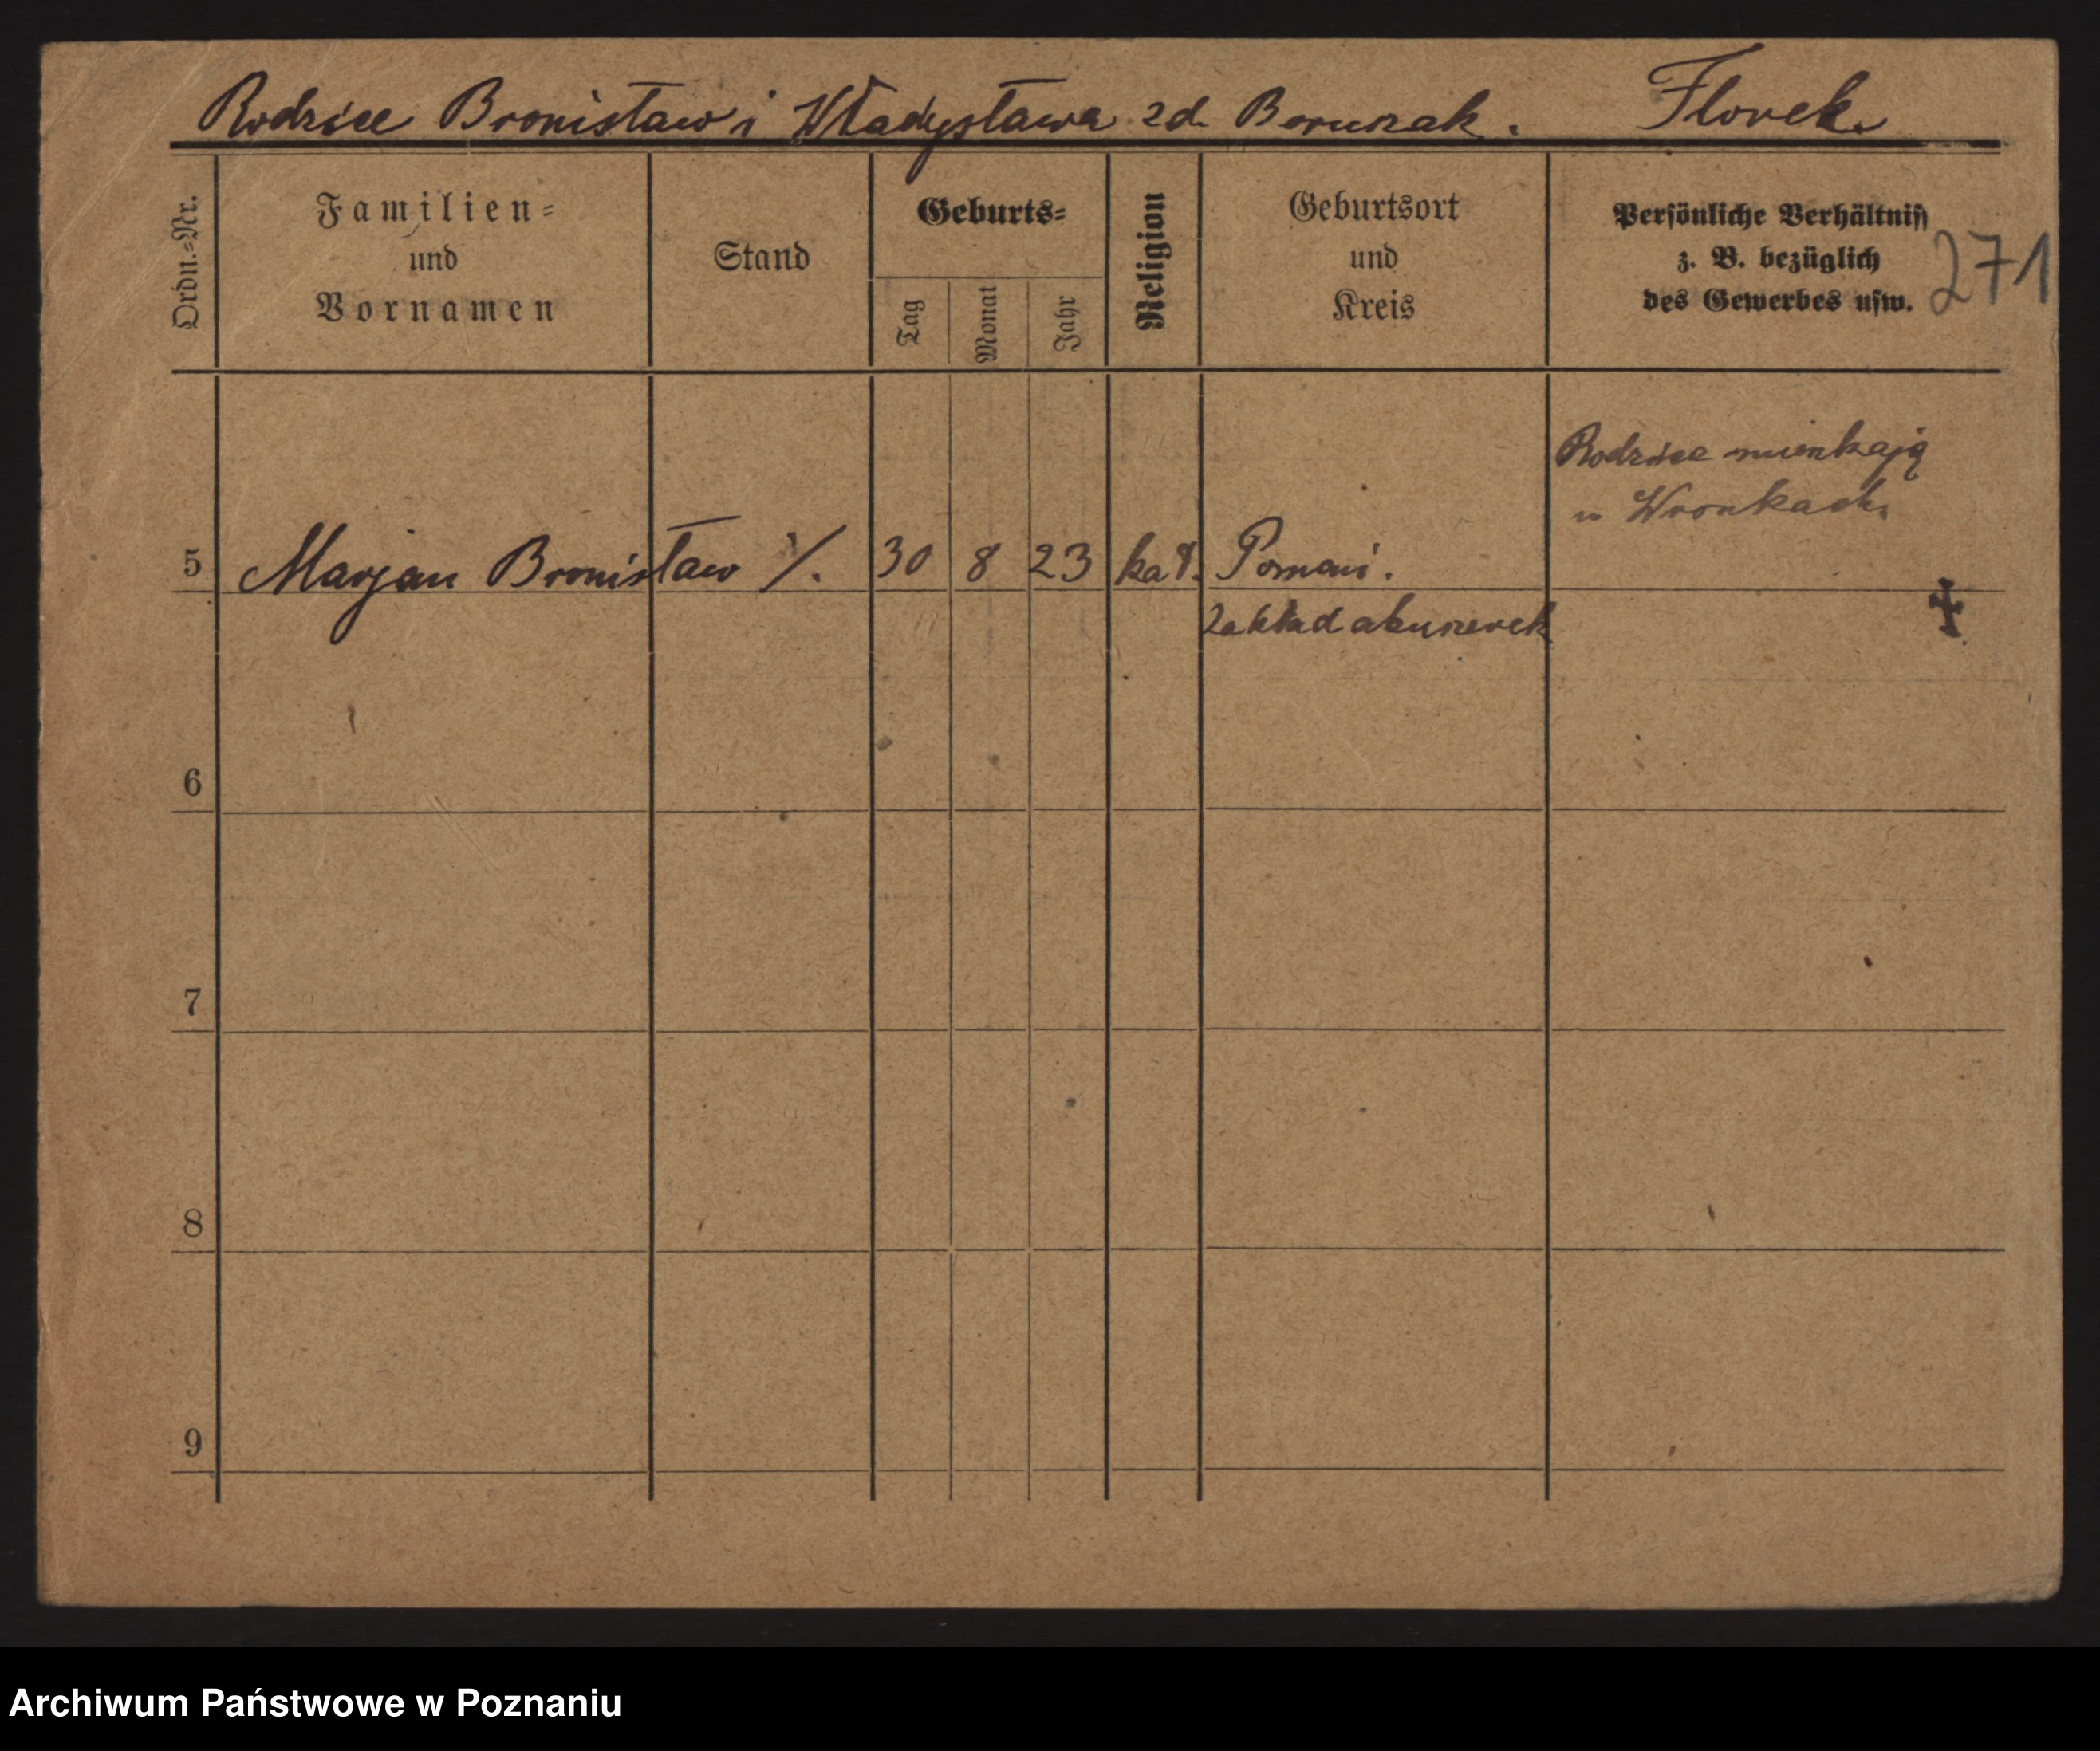 Rodzice Bronisław i Władysława zd. Boruszak. Florek
Ordn.=Nr.
Familien=
und
Vornamen
Stand
Geburts=
Tag
Monat
Jahr
Religion
Geburtsort
und
Kreis
Persönliche Verhältniss
z. B. bezüglich
des Gewerbes usw.
271
Rodzice mieszkają
w Wronkach
5 Marjan Bronisław ·/. 30 8 23 kat. Poznań.
Zakład akuszerek
6
7
8
9
Archiwum Państwowe w Poznaniu